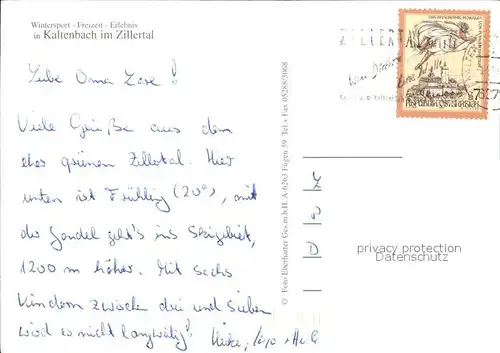 Wintersport - Freizeit - Erlebnis
in Kaltenbach im Zillertal
Liebe Oma Lore!
Viele Grüße aus dem
eher grünen Zillertal. Hier
unten ist Frühling (20°), mit
der Gondel geht's ins Skigebiet,
1200 m höher. Mit sechs
Kindern zwischen drei und sieben
wird es nicht langweilig!
© Foto Eberharter Ges.m.b.H. A-6263 Fügen 59 Tel.+ Fax 05288/3068
ZILLERTAL
REPUBLIK ÖSTERREICH
protection privacy
Datenschutz